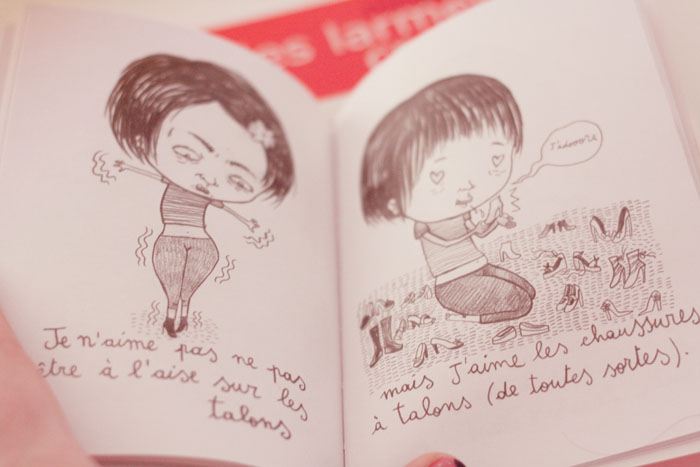 es larme
Je n'aime pas ne pas
être à l'aise sur les
talons
J'adoooore
mais J'aime les chaussures
à talons (de toutes sortes).